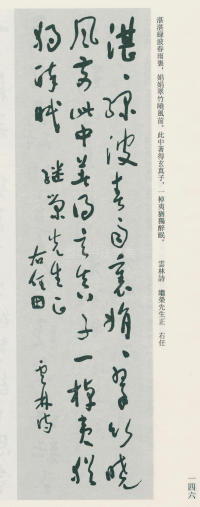 湛湛綠波春雨裏，娟娟翠竹曉風前。此中著得玄真子，一棹夷猶獨醉眠。　雲林詩　繼榮先生正　右任
湛、綠波春雨裏娟、翠竹曉
風前此中著得玄真子一棹夷猶
獨醉眠
雲林詩
繼榮先生正
右任
一四六